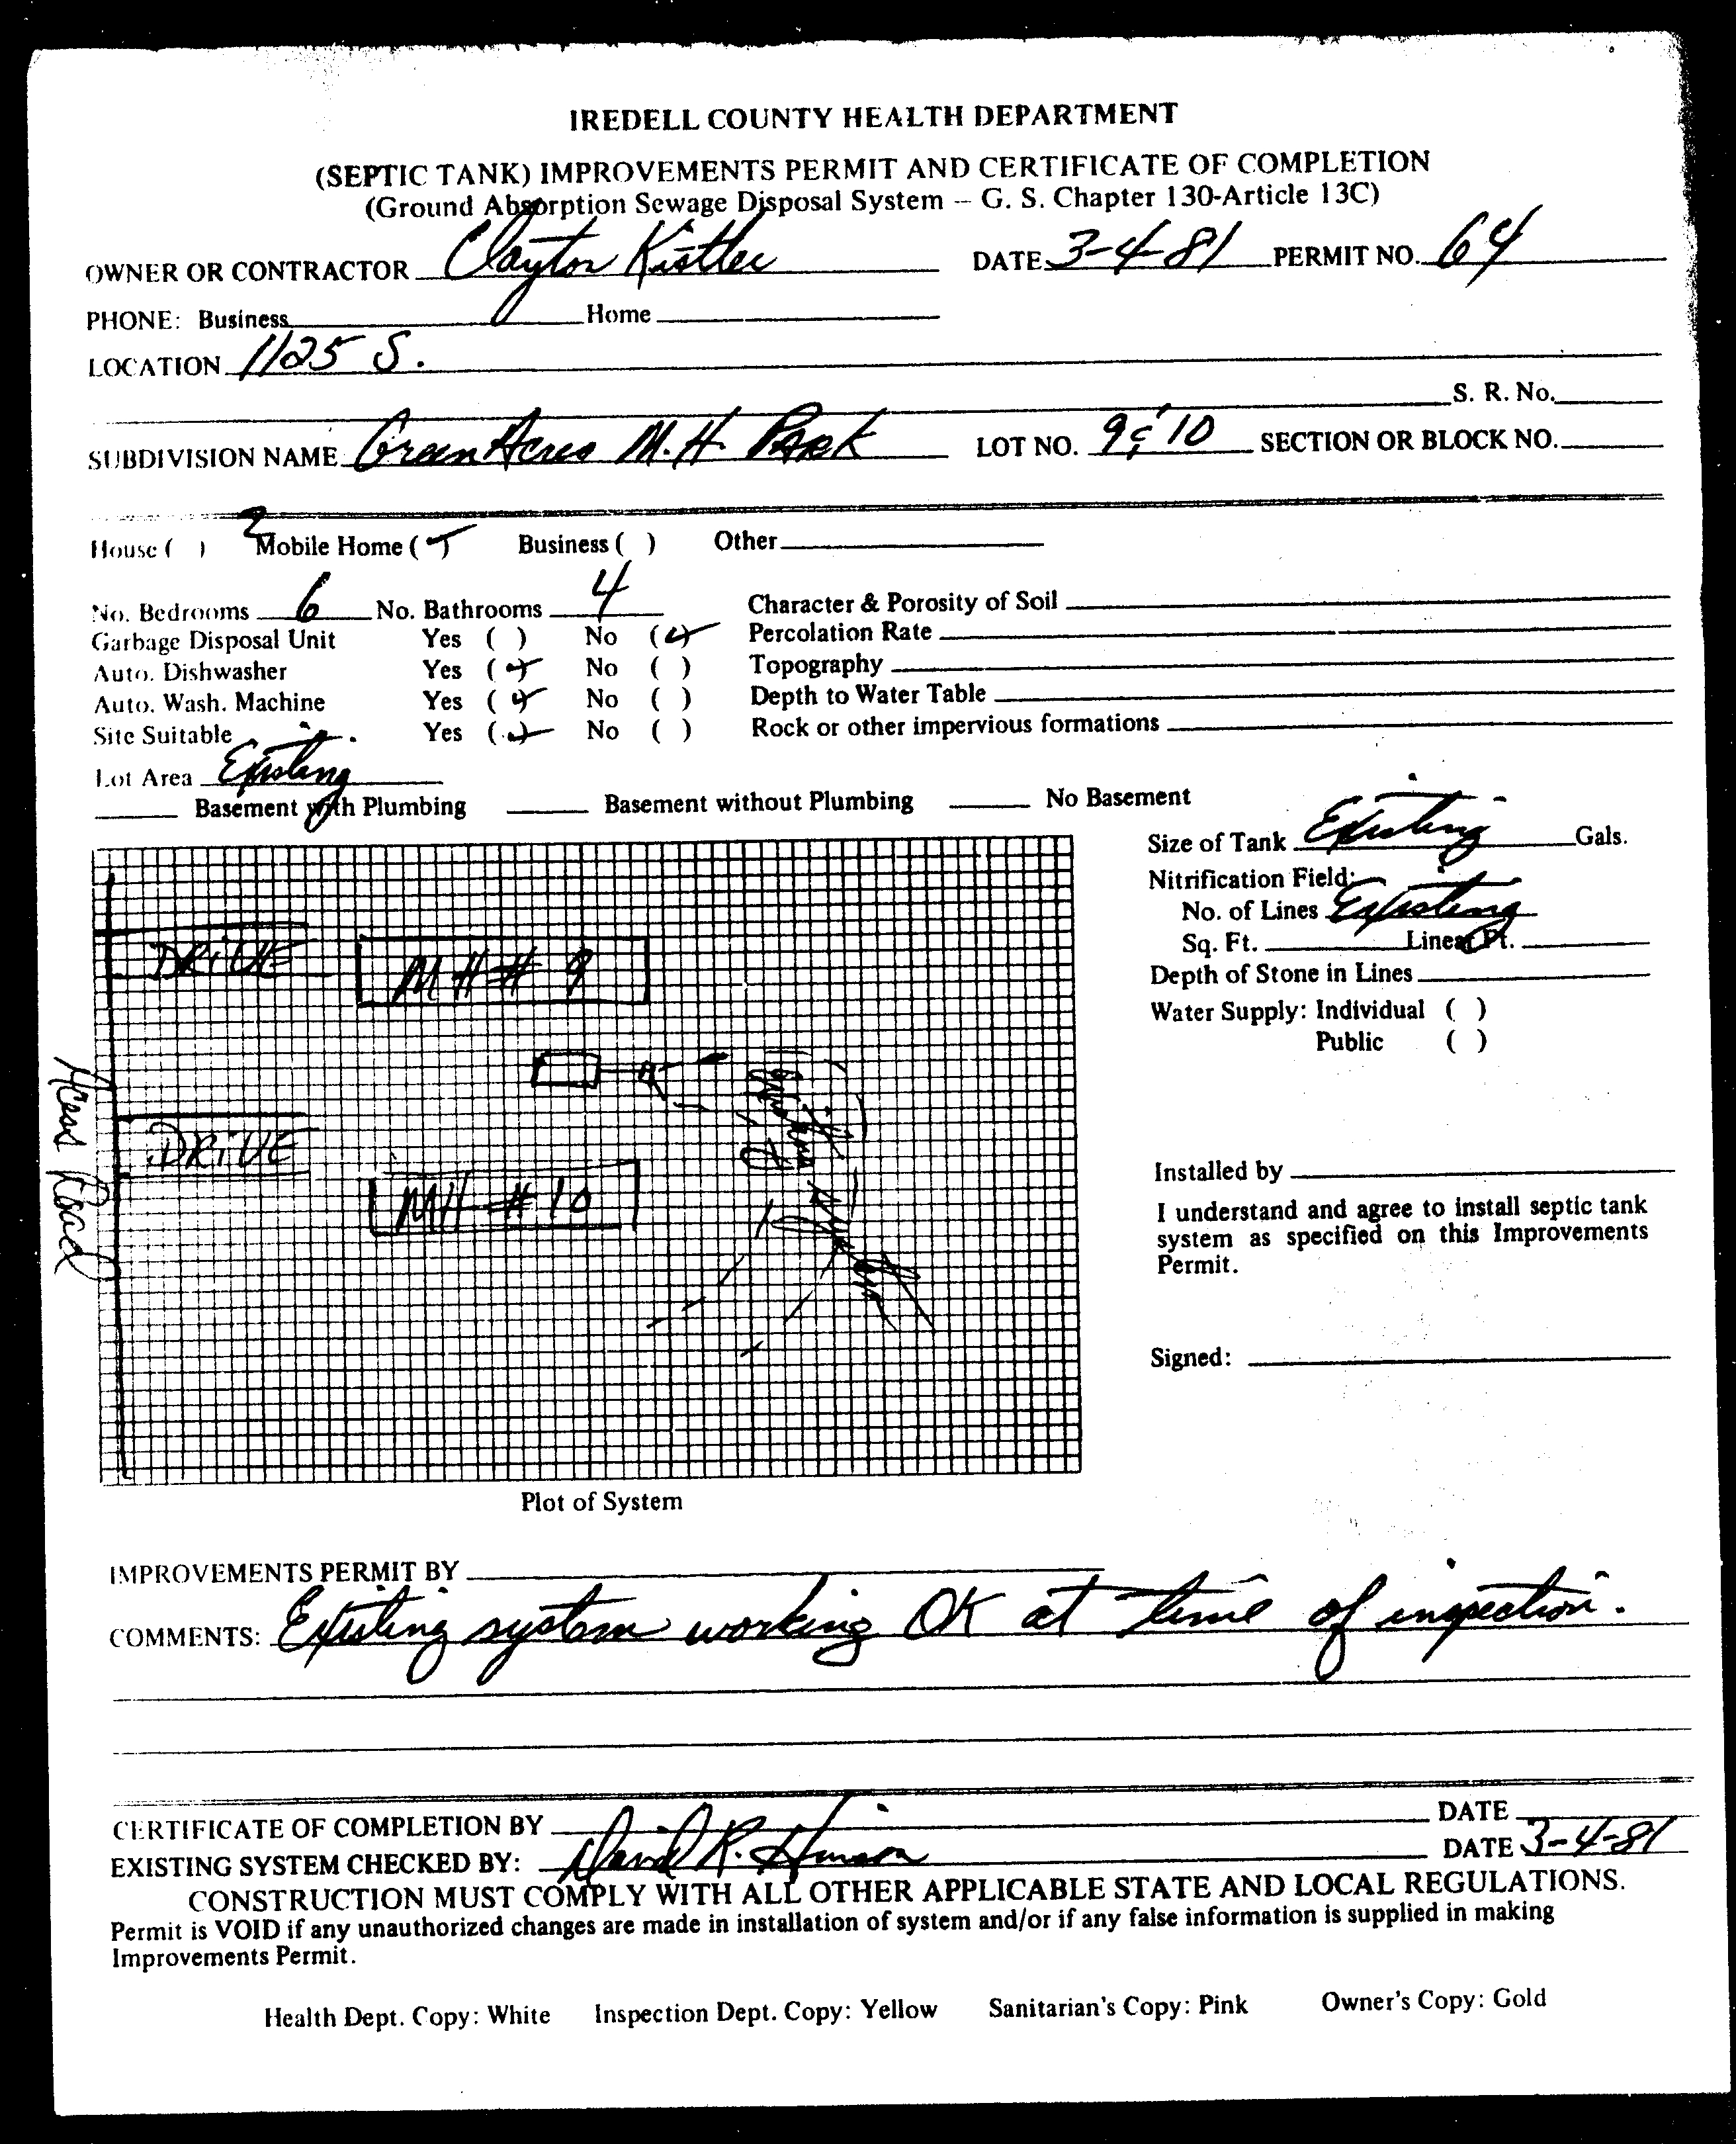 IREDELL COUNTY HEALTH DEPARTMENT
(SEPTIC TANK) IMPROVEMENTS PERMIT AND CERTIFICATE OF COMPLETION
(Ground Absorption Sewage Disposal System -- G. S. Chapter 130-Article 13C)
OWNER OR CONTRACTOR Clayton Kistler DATE 3-4-81 PERMIT NO. 64
PHONE: Business Home
LOCATION 1125 S.
S. R. No.
SUBDIVISION NAME Green Acres M.H. Park LOT NO. 9 & 10 SECTION OR BLOCK NO.
House ( ) 2 Mobile Home (✓) Business ( ) Other
No. Bedrooms 6 No. Bathrooms 4 Character & Porosity of Soil
Garbage Disposal Unit Yes ( ) No (✓) Percolation Rate
Auto. Dishwasher Yes (✓) No ( ) Topography
Auto. Wash. Machine Yes (✓) No ( ) Depth to Water Table
Site Suitable Yes (✓) No ( ) Rock or other impervious formations
Lot Area Existing
Basement with Plumbing Basement without Plumbing No Basement
Size of Tank Existing Gals.
Nitrification Field:
No. of Lines Existing
Sq. Ft. Linear Ft.
Depth of Stone in Lines
Water Supply: Individual ( )
Public ( )
DRIVE
MH # 9
Existing System
Acess Road
DRIVE
MH # 10
Installed by
I understand and agree to install septic tank
system as specified on this Improvements
Permit.
Signed:
Plot of System
IMPROVEMENTS PERMIT BY
COMMENTS: Existing system working OK at time of inspection.
CERTIFICATE OF COMPLETION BY DATE
EXISTING SYSTEM CHECKED BY: David R. Hinson DATE 3-4-81
CONSTRUCTION MUST COMPLY WITH ALL OTHER APPLICABLE STATE AND LOCAL REGULATIONS.
Permit is VOID if any unauthorized changes are made in installation of system and/or if any false information is supplied in making
Improvements Permit.
Health Dept. Copy: White Inspection Dept. Copy: Yellow Sanitarian's Copy: Pink Owner's Copy: Gold